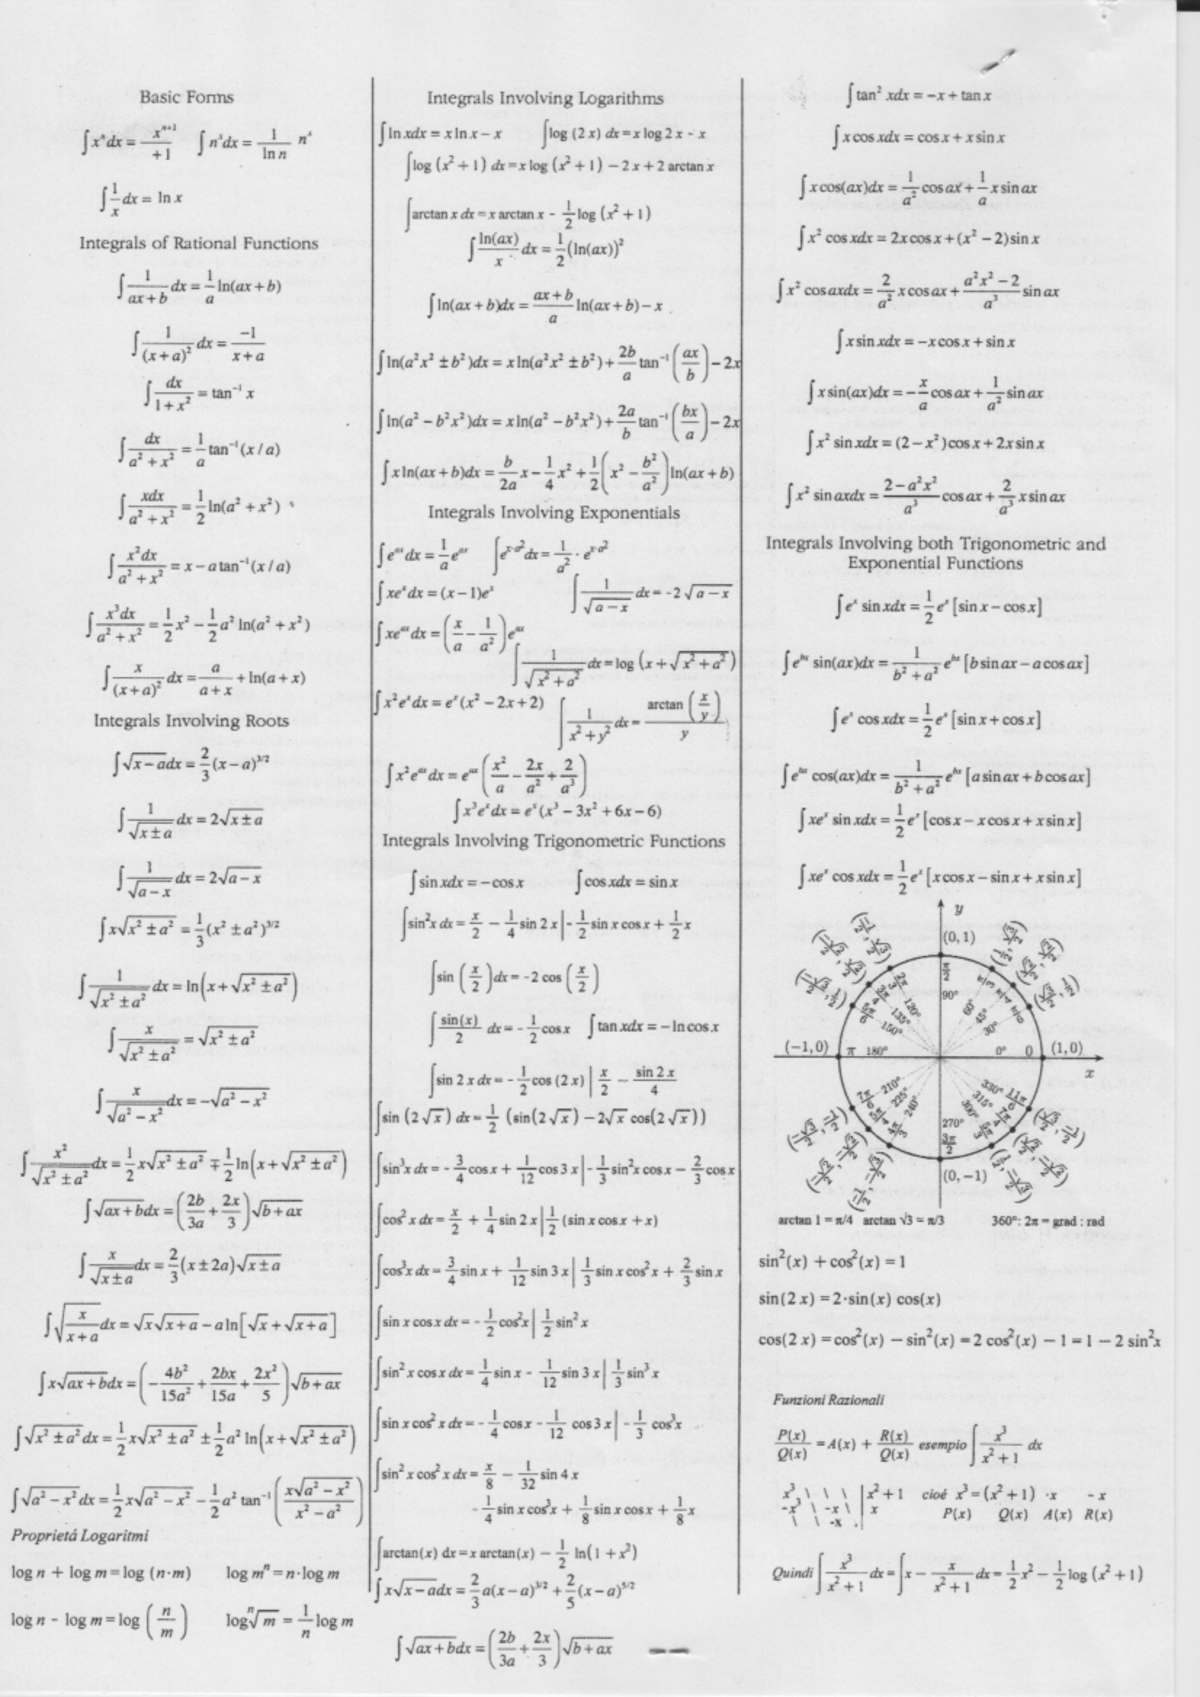 Basic Forms
∫xⁿdx = xⁿ⁺¹/+1   ∫nˣdx = 1/ln n nˣ
∫1/x dx = ln x
Integrals of Rational Functions
∫1/(ax+b) dx = 1/a ln(ax+b)
∫1/(x+a)² dx = −1/(x+a)
∫dx/(1+x²) = tan⁻¹ x
∫dx/(a²+x²) = 1/a tan⁻¹(x/a)
∫xdx/(a²+x²) = 1/2 ln(a²+x²)
∫x²dx/(a²+x²) = x−a tan⁻¹(x/a)
∫x³dx/(a²+x²) = 1/2 x² − 1/2 a² ln(a²+x²)
∫x/(x+a)² dx = a/(a+x) + ln(a+x)
Integrals Involving Roots
∫√(x−a)dx = 2/3 (x−a)^3/2
∫1/√(x±a) dx = 2√(x±a)
∫1/√(a−x) dx = 2√(a−x)
∫x√(x²±a²) = 1/3 (x²±a²)^3/2
∫1/√(x²±a²) dx = ln(x+√(x²±a²))
∫x/√(x²±a²) = √(x²±a²)
∫x/√(a²−x²) dx = −√(a²−x²)
∫x²/√(x²±a²) dx = 1/2 x√(x²±a²) ∓ 1/2 ln(x+√(x²±a²))
∫√(ax+b)dx = (2b/3a + 2x/3)√(b+ax)
∫x/√(x±a) dx = 2/3 (x±2a)√(x±a)
∫√(x/(x+a)) dx = √x√(x+a) − a ln[√x+√(x+a)]
∫x√(ax+b)dx = (−4b²/15a² + 2bx/15a + 2x²/5)√(b+ax)
∫√(x²±a²)dx = 1/2 x√(x²±a²) ± 1/2 a² ln(x+√(x²±a²))
∫√(a²−x²)dx = 1/2 x√(a²−x²) − 1/2 a² tan⁻¹(x√(a²−x²)/(x²−a²))
Proprietá Logaritmi
log n + log m = log (n·m)   log mⁿ = n·log m
log n - log m = log (n/m)   log ⁿ√m = 1/n log m
Integrals Involving Logarithms
∫ln xdx = x ln x − x   ∫log (2 x) dx = x log 2 x - x
∫log (x²+1) dx = x log (x²+1) − 2 x + 2 arctan x
∫arctan x dx = x arctan x - 1/2 log (x²+1)
∫ln(ax)/x dx = 1/2 (ln(ax))²
∫ln(ax+b)dx = (ax+b)/a ln(ax+b) − x
∫ln(a²x²±b²)dx = x ln(a²x²±b²) + 2b/a tan⁻¹(ax/b) − 2x
∫ln(a²−b²x²)dx = x ln(a²−b²x²) + 2a/b tan⁻¹(bx/a) − 2x
∫x ln(ax+b)dx = b/2a x − 1/4 x² + 1/2 (x² − b²/a²) ln(ax+b)
Integrals Involving Exponentials
∫e^ax dx = 1/a e^ax   ∫e^x·a² dx = 1/a² · e^x·a²
∫xeˣdx = (x−1)eˣ   ∫1/√(a−x) dx = -2 √(a−x)
∫xe^ax dx = (x/a − 1/a²) e^ax
∫1/√(x²+a²) dx = log (x+√(x²+a²))
∫x²eˣdx = eˣ(x²−2x+2)   ∫1/(x²+y²) dx = arctan (x/y)/y
∫x²e^ax dx = e^ax (x²/a − 2x/a² + 2/a³)
∫x³eˣdx = eˣ(x³−3x²+6x−6)
Integrals Involving Trigonometric Functions
∫sin xdx = −cos x   ∫cos xdx = sin x
∫sin²x dx = x/2 − 1/4 sin 2 x | - 1/2 sin x cos x + 1/2 x
∫sin (x/2) dx = -2 cos (x/2)
∫sin(x)/2 dx = - 1/2 cos x   ∫tan xdx = −ln cos x
∫sin 2 x dx = - 1/2 cos (2 x) | x/2 − sin 2 x/4
∫sin (2√x) dx = 1/2 (sin(2√x) − 2√x cos(2√x))
∫sin³x dx = - 3/4 cos x + 1/12 cos 3 x | - 1/3 sin²x cos x − 2/3 cos x
∫cos² x dx = x/2 + 1/4 sin 2 x | 1/2 (sin x cos x + x)
∫cos³x dx = 3/4 sin x + 1/12 sin 3 x | 1/3 sin x cos² x + 2/3 sin x
∫sin x cos x dx = - 1/2 cos²x | 1/2 sin² x
∫sin² x cos x dx = 1/4 sin x - 1/12 sin 3 x | 1/3 sin³ x
∫sin x cos² x dx = - 1/4 cos x - 1/12 cos 3 x | - 1/3 cos³x
∫sin² x cos² x dx = x/8 − 1/32 sin 4 x
- 1/4 sin x cos³x + 1/8 sin x cos x + 1/8 x
∫arctan(x) dx = x arctan(x) − 1/2 ln(1+x²)
∫x√(x−a)dx = 2/3 a(x−a)^3/2 + 2/5 (x−a)^5/2
∫√(ax+b)dx = (2b/3a + 2x/3)√(b+ax)
∫tan² xdx = −x + tan x
∫x cos xdx = cos x + x sin x
∫x cos(ax)dx = 1/a² cos ax + 1/a x sin ax
∫x² cos xdx = 2x cos x + (x²−2) sin x
∫x² cos axdx = 2/a² x cos ax + (a²x²−2)/a³ sin ax
∫x sin xdx = −x cos x + sin x
∫x sin(ax)dx = −x/a cos ax + 1/a² sin ax
∫x² sin xdx = (2−x²) cos x + 2x sin x
∫x² sin axdx = (2−a²x²)/a³ cos ax + 2/a³ x sin ax
Integrals Involving both Trigonometric and
Exponential Functions
∫eˣ sin xdx = 1/2 eˣ [sin x − cos x]
∫e^bx sin(ax)dx = 1/(b²+a²) e^bx [b sin ax − a cos ax]
∫eˣ cos xdx = 1/2 eˣ [sin x + cos x]
∫e^bx cos(ax)dx = 1/(b²+a²) e^bx [a sin ax + b cos ax]
∫xeˣ sin xdx = 1/2 eˣ [cos x − x cos x + x sin x]
∫xeˣ cos xdx = 1/2 eˣ [x cos x − sin x + x sin x]
y
(0, 1)
π/2
90°
120° 60°
135° 45°
150° 30°
(−1, 0) π 180° 0° 0 (1, 0)
x
210° 330° 11π/6
225° 315° 7π/4
240° 300° 5π/3
270°
3π/2
(0, −1)
arctan 1 = π/4 arctan √3 = π/3   360°: 2π = grad : rad
sin²(x) + cos²(x) = 1
sin(2 x) = 2·sin(x) cos(x)
cos(2 x) = cos²(x) − sin²(x) = 2 cos²(x) − 1 = 1 − 2 sin²x
Funzioni Razionali
P(x)/Q(x) = A(x) + R(x)/Q(x) esempio ∫x³/(x²+1) dx
x³ \ \ \ | x²+1 cioé x³ = (x²+1) ·x - x
-x³ \ -x \ | x P(x) Q(x) A(x) R(x)
\ \ -x
Quindi ∫x³/(x²+1) dx = ∫x − x/(x²+1) dx = 1/2 x² − 1/2 log (x²+1)